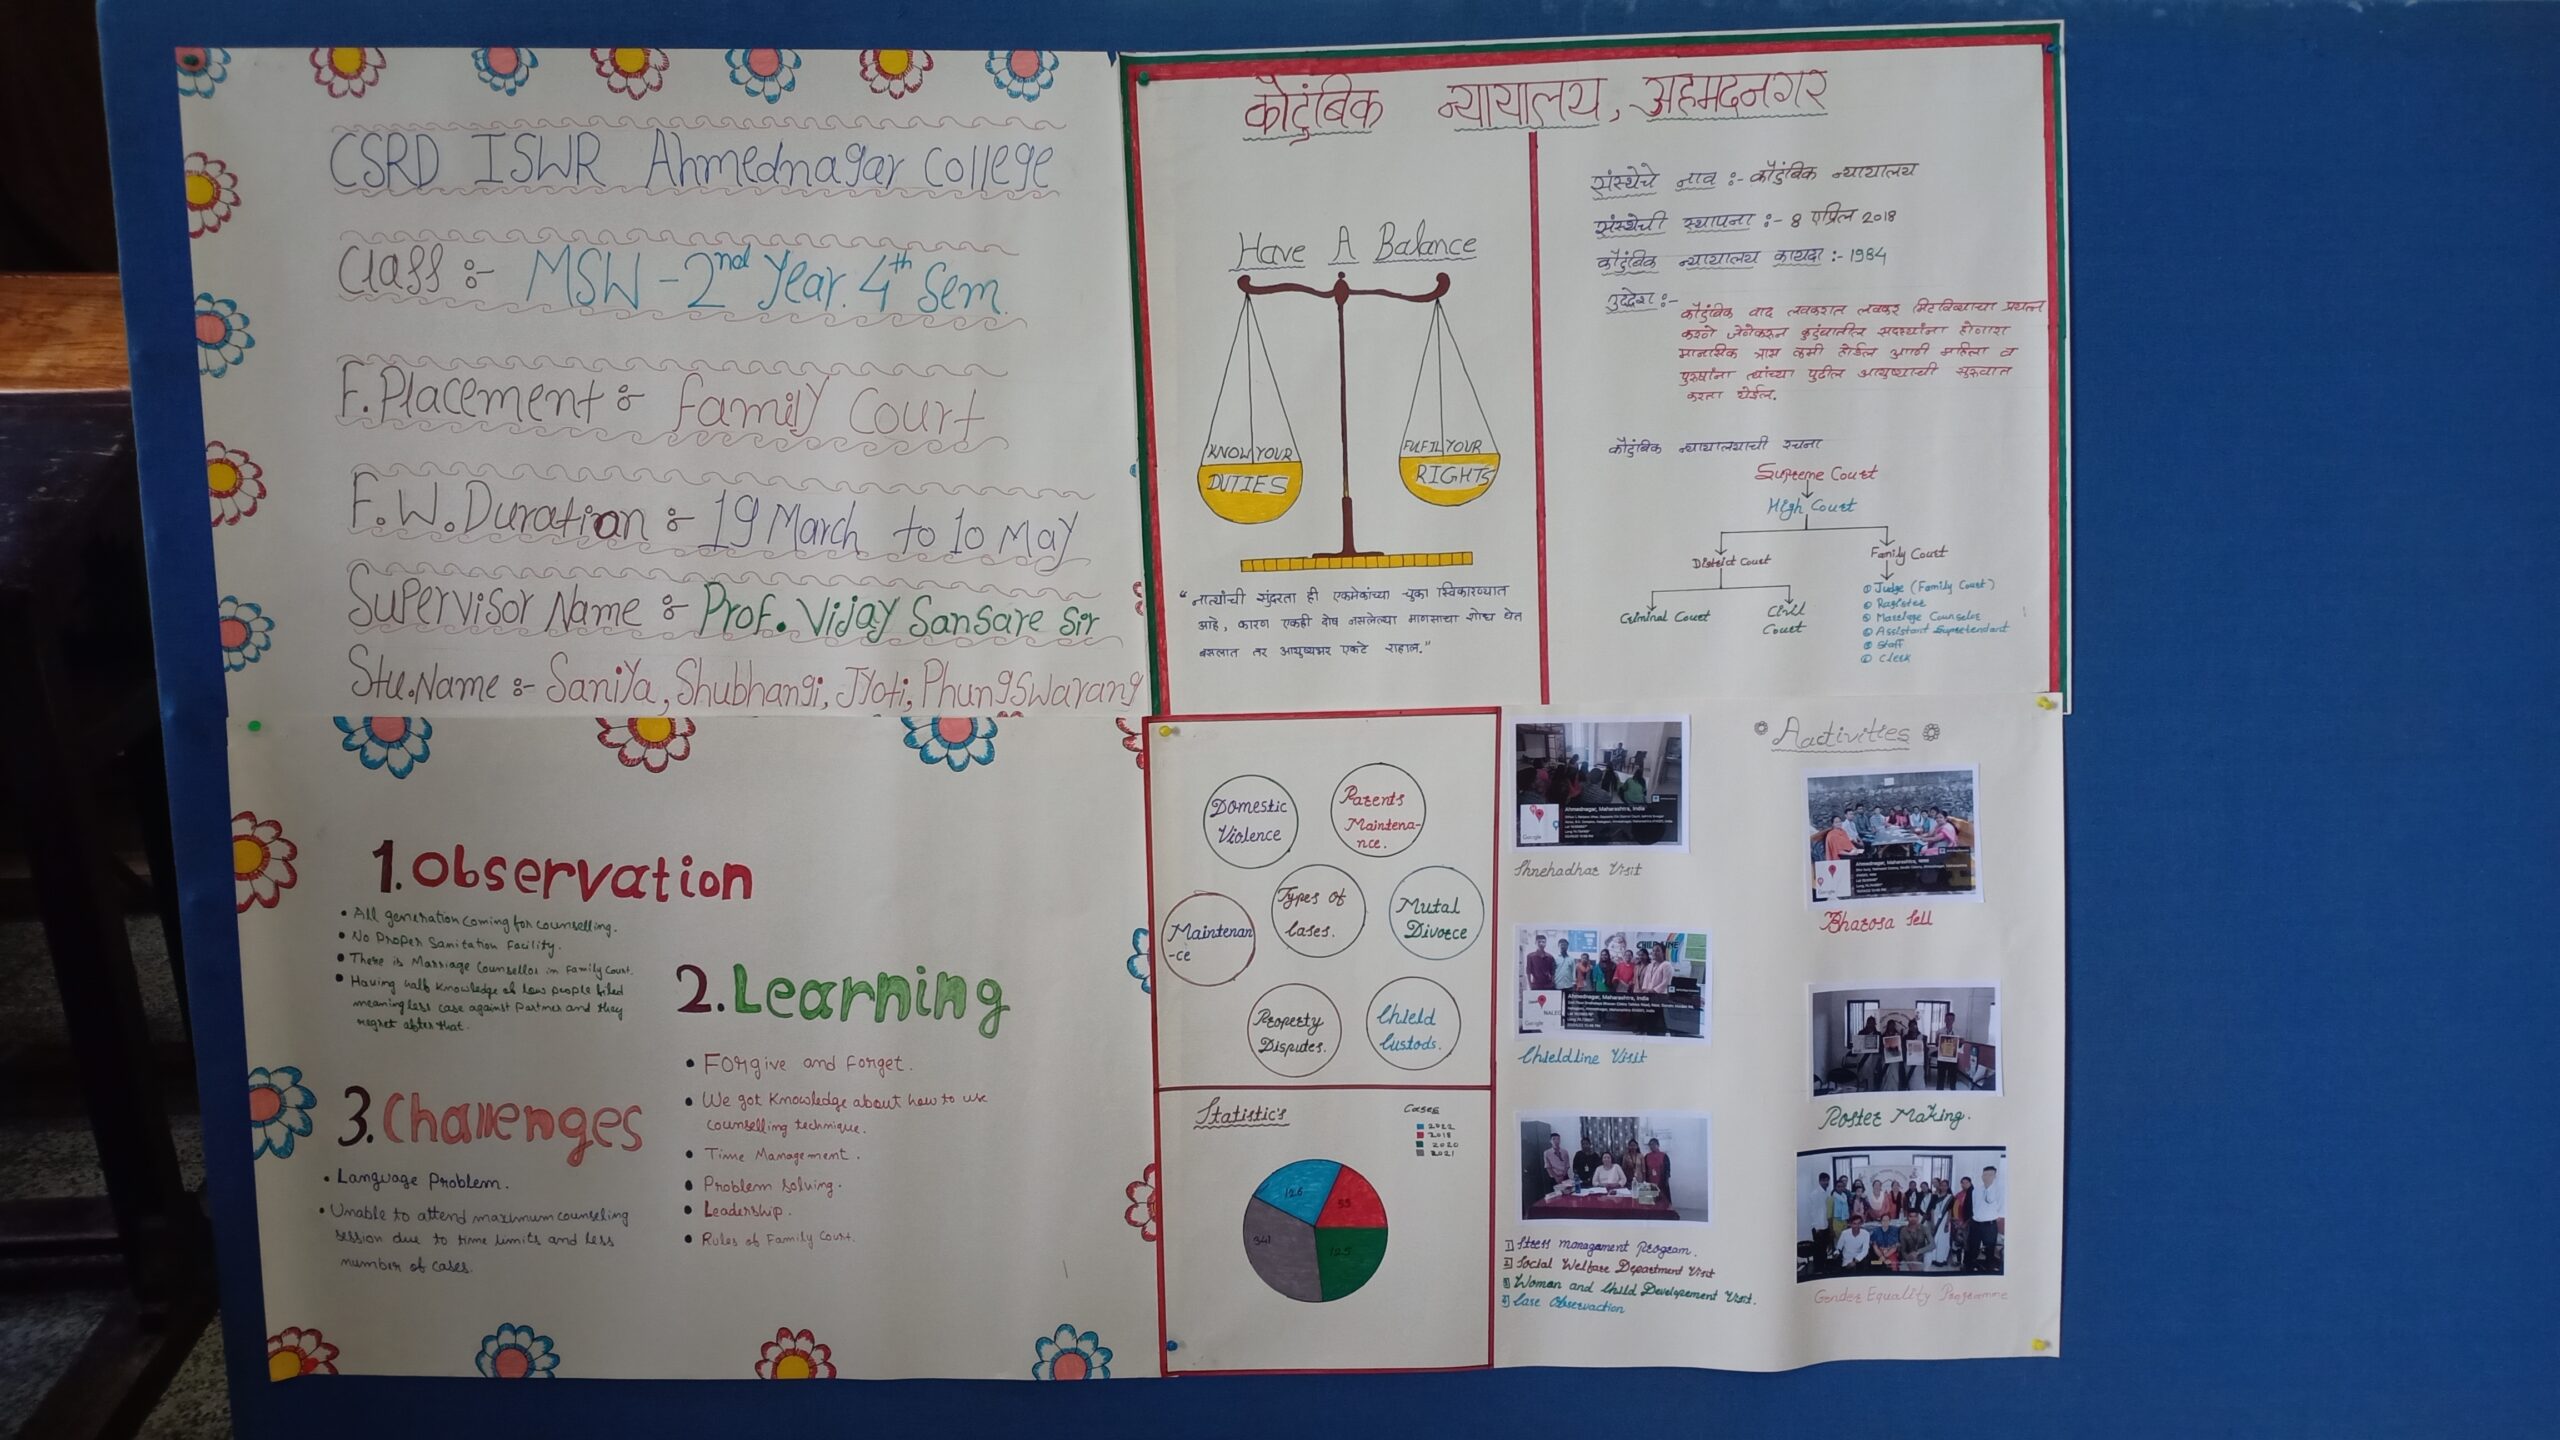 CSRD ISWR Ahmednagar College
Class :- MSW - 2nd Year. 4th Sem.
F.Placement :- Family Court
F.W.Duration :- 19 March to 10 May
Supervisor Name :- Prof. Vijay Sansare Sir
Stu.Name :- Saniya, Shubhangi, Jyoti, Phungswarang
कौटुंबिक न्यायालय, अहमदनगर
Have A Balance
KNOW YOUR
DUTIES
FULFIL YOUR
RIGHTS
"नात्यांची सुंदरता ही एकमेकांच्या चुका स्विकारण्यात
आहे, कारण एकही दोष नसलेल्या माणसाचा शोध घेत
बसलात तर आयुष्यभर एकटे राहाल."
संस्थेचे नाव :- कौटुंबिक न्यायालय
संस्थेची स्थापना :- 8 एप्रिल 2018
कौटुंबिक न्यायालय कायदा :- 1984
उद्देश :-
कौटुंबिक वाद लवकरात लवकर मिटविण्याचा प्रयत्न
करणे जेणेकरून कुटुंबातील सदस्यांना होणारा
मानसिक त्रास कमी होईल आणी महिला व
पुरुषांना त्यांच्या पुढील आयुष्याची सुरुवात
करता येईल.
कौटुंबिक न्यायालयाची रचना
Supreme Court
High Court
District Court
Family Court
Criminal Court
Civil
Court
① Judge (Family Court)
② Register
③ Marriage Counselor
④ Assistant Supretendant
⑤ Staff
⑥ Clerk
1. Observation
• All generation coming for counselling.
• No Proper Sanitation Facility.
• There is Marriage Counsellor in Family Court.
• Having half knowledge of law people filed
meaningless case against Partner and they
regret after that.
2. Learning
• Forgive and Forget.
• We got Knowledge about how to use
counselling technique.
• Time Management.
• Problem Solving.
• Leadership.
• Rules of Family Court.
3. Challenges
• Language Problem.
• Unable to attend maximum counseling
session due to time limits and less
number of cases.
Domestic
Violence
Parents
Maintena-
nce.
Maintenan
-ce
Types of
Cases.
Mutal
Divorce
Property
Disputes.
Chield
Custods.
Statistic's
Cases
2022
2018
2020
2021
126
55
341
125
Aactivities
Ahmednagar, Maharashtra, India
Google
Shnehadhar Visit
Google
Bharosa Sell
CHILD LINE
Ahmednagar, Maharashtra, India
Google
Chieldline Visit
Poster Making.
1] Stress management Program.
2] Social Welfare Department Visit
3] Woman and Child Developement Visit.
4] Case Observaction
Gender Equality Programme